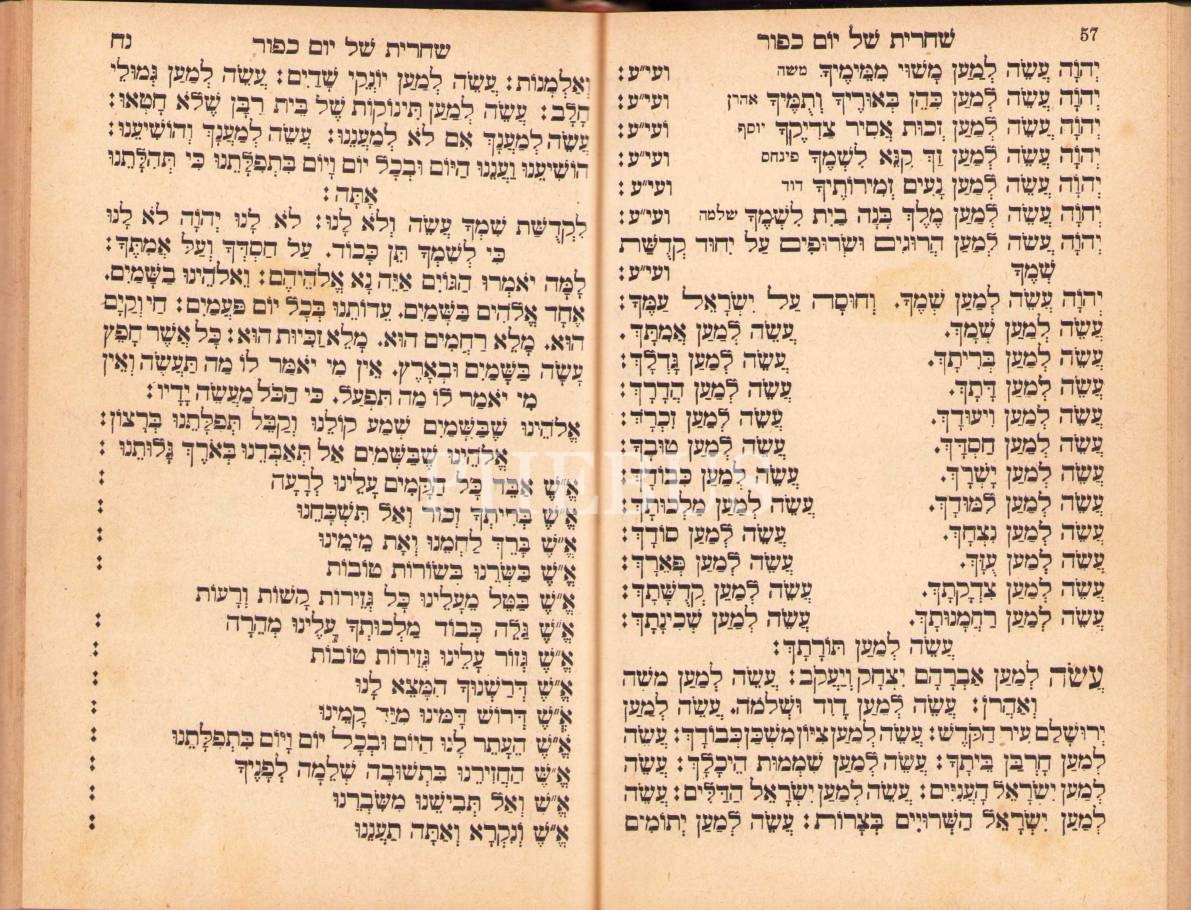 57
שחרית של יום כפור
יְהוָֹה עֲשֵׂה לְמַעַן מָשׁוּי מִמֵּימֶיךָ משה ועי״ע:
יְהוָֹה עֲשֵׂה לְמַעַן כִּהֵן בְּאוּרֶיךָ וְתֻמֶּיךָ אהרן ועי״ע:
יְהוָֹה עֲשֵׂה לְמַעַן זְכוּת אֲסִיר צִדְיֶקְךָ יוסף ועי״ע:
יְהוָֹה עֲשֵׂה לְמַעַן זַךְ קִנֵּא לִשְׁמֶךָ פינחס ועי״ע:
יְהוָֹה עֲשֵׂה לְמַעַן נָעִים זְמִירוֹתֶיךָ דוד ועי״ע:
יְהוָֹה עֲשֵׂה לְמַעַן מֶלֶךְ בָּנָה בַיִת לִשְׁמֶךָ שלמה ועי״ע:
יְהוָֹה עֲשֵׂה לְמַעַן הֲרוּגִים וּשְׂרוּפִים עַל יִחוּד קְדֻשַּׁת
שְׁמֶךָ ועי״ע:
יְהוָֹה עֲשֵׂה לְמַעַן שְׁמֶךָ. וְחוּסָה עַל יִשְׂרָאֵל עַמֶּךָ:
עֲשֵׂה לְמַעַן שְׁמָךְ. עֲשֵׂה לְמַעַן אֲמִתָּךְ.
עֲשֵׂה לְמַעַן בְּרִיתָךְ. עֲשֵׂה לְמַעַן גָּדְלָךְ:
עֲשֵׂה לְמַעַן דָּתָךְ. עֲשֵׂה לְמַעַן הֲדָרָךְ:
עֲשֵׂה לְמַעַן וִיעוּדָךְ. עֲשֵׂה לְמַעַן זִכְרָךְ:
עֲשֵׂה לְמַעַן חַסְדָּךְ. עֲשֵׂה לְמַעַן טוּבָךְ:
עֲשֵׂה לְמַעַן יָשְׁרָךְ. עֲשֵׂה לְמַעַן כְּבוֹדָךְ:
עֲשֵׂה לְמַעַן לִמּוּדָךְ. עֲשֵׂה לְמַעַן מַלְכוּתָךְ:
עֲשֵׂה לְמַעַן נִצְחָךְ. עֲשֵׂה לְמַעַן סוֹדָךְ:
עֲשֵׂה לְמַעַן עֻזָּךְ. עֲשֵׂה לְמַעַן פְּאֵרָךְ:
עֲשֵׂה לְמַעַן צִדְקָתָךְ. עֲשֵׂה לְמַעַן קְדֻשָּׁתָךְ:
עֲשֵׂה לְמַעַן רַחְמָנוּתָךְ. עֲשֵׂה לְמַעַן שְׁכִינָתָךְ:
עֲשֵׂה לְמַעַן תּוֹרָתָךְ:
עֲשֵׂה לְמַעַן אַבְרָהָם יִצְחָק וְיַעֲקֹב: עֲשֵׂה לְמַעַן משֶׁה
וְאַהֲרֹן: עֲשֵׂה לְמַעַן דָּוִד וּשְׁלֹמֹה. עֲשֵׂה לְמַעַן
יְרוּשָׁלַם עִיר הַקֹּדֶשׁ: עֲשֵׂה לְמַעַן צִיּוֹן מִשְׁכַּן כְּבוֹדָךְ: עֲשֵׂה
לְמַעַן חָרְבַּן בֵּיתָךְ: עֲשֵׂה לְמַעַן שִׁמְמוּת הֵיכָלָךְ: עֲשֵׂה
לְמַעַן יִשְׂרָאֵל הָעֲנִיִּים: עֲשֵׂה לְמַעַן יִשְׂרָאֵל הַדַּלִּים: עֲשֵׂה
לְמַעַן יִשְׂרָאֵל הַשְּׁרוּיִים בְּצָרוֹת: עֲשֵׂה לְמַעַן יְתוֹמִים
שחרית של יום כפור
נח
וְאַלְמָנוֹת: עֲשֵׂה לְמַעַן יוֹנְקֵי שָׁדַיִם: עֲשֵׂה לְמַעַן גְּמוּלֵי
חָלָב: עֲשֵׂה לְמַעַן תִּינוֹקוֹת שֶׁל בֵּית רַבָּן שֶׁלֹּא חָטְאוּ:
עֲשֵׂה לְמַעֲנָךְ אִם לֹא לְמַעֲנֵנוּ: עֲשֵׂה לְמַעֲנָךְ וְהוֹשִׁיעֵנוּ:
הוֹשִׁיעֵנוּ וַעֲנֵנוּ הַיּוֹם וּבְכָל יוֹם וָיוֹם בִּתְפִלָּתֵנוּ כִּי תְהִלָּתֵנוּ
אָתָּה:
לִקְדֻשַּׁת שִׁמְךָ עֲשֵׂה וְלֹא לָנוּ: לֹא לָנוּ יְהוָֹה לֹא לָנוּ
כִּי לְשִׁמְךָ תֵּן כָּבוֹד. עַל חַסְדְּךָ וְעַל אֲמִתֶּךָ:
לָמָּה יֹאמְרוּ הַגּוֹיִם אַיֵּה נָא אֱלֹהֵיהֶם: וֵאלֹהֵינוּ בַשָּׁמַיִם.
אֶחָד אֱלֹהִים בַּשָּׁמַיִם. עֵדוֹתֵנוּ בְּכָל יוֹם פַּעֲמַיִם: חַי וְקַיָּם
הוּא. מָלֵא רַחֲמִים הוּא. מָלֵא זַכִּיּוּת הוּא: כָּל אֲשֶׁר חָפֵץ
עָשָׂה בַּשָּׁמַיִם וּבָאָרֶץ. אֵין מִי יֹאמַר לוֹ מַה תַּעֲשֶׂה וְאֵין
מִי יֹאמַר לוֹ מַה תִּפְעַל. כִּי הַכֹּל מַעֲשֵׂה יָדָיו:
אֱלֹהֵינוּ שֶׁבַּשָּׁמַיִם שְׁמַע קוֹלֵנוּ וְקַבֵּל תְּפִלָּתֵנוּ בְּרָצוֹן:
אֱלֹהֵינוּ שֶׁבַּשָּׁמַיִם אַל תְּאַבְּדֵנוּ בְּאֹרֶךְ גָּלוּתֵנוּ :
אֱ״שֶׁ אַבֵּד כָּל הַקָּמִים עָלֵינוּ לְרָעָה :
אֱ״שֶׁ בְּרִיתְךָ זְכוֹר וְאַל תִּשְׁכָּחֵנוּ :
אֱ״שֶׁ בָּרֵךְ לַחְמֵנוּ וְאֶת מֵימֵינוּ :
אֱ״שֶׁ בַּשְּׂרֵנוּ בְּשׂוֹרוֹת טוֹבוֹת :
אֱ״שֶׁ בַּטֵּל מֵעָלֵינוּ כָּל גְּזֵירוֹת קָשׁוֹת וְרָעוֹת :
אֱ״שֶׁ גַּלֵּה כְּבוֹד מַלְכוּתְךָ עָלֵינוּ מְהֵרָה :
אֱ״שֶׁ גְּזוֹר עָלֵינוּ גְּזֵירוֹת טוֹבוֹת :
אֱ״שֶׁ דְּרַשְׁנוּךָ הִמָּצֵא לָנוּ :
אֱ״שֶׁ דְּרוֹשׁ דָּמֵינוּ מִיַּד קָמֵינוּ :
אֱ״שֶׁ הֵעָתֵר לָנוּ הַיּוֹם וּבְכָל יוֹם וָיוֹם בִּתְפִלָּתֵנוּ :
אֱ״שֶׁ הַחֲזִירֵנוּ בִּתְשׁוּבָה שְׁלֵמָה לְפָנֶיךָ :
אֱ״שֶׁ וְאַל תְּבִישֵׁנוּ מִשִּׂבְרֵנוּ :
אֱ״שֶׁ וְנִקְרָא וְאַתָּה תַעֲנֵנוּ
PHEBUS